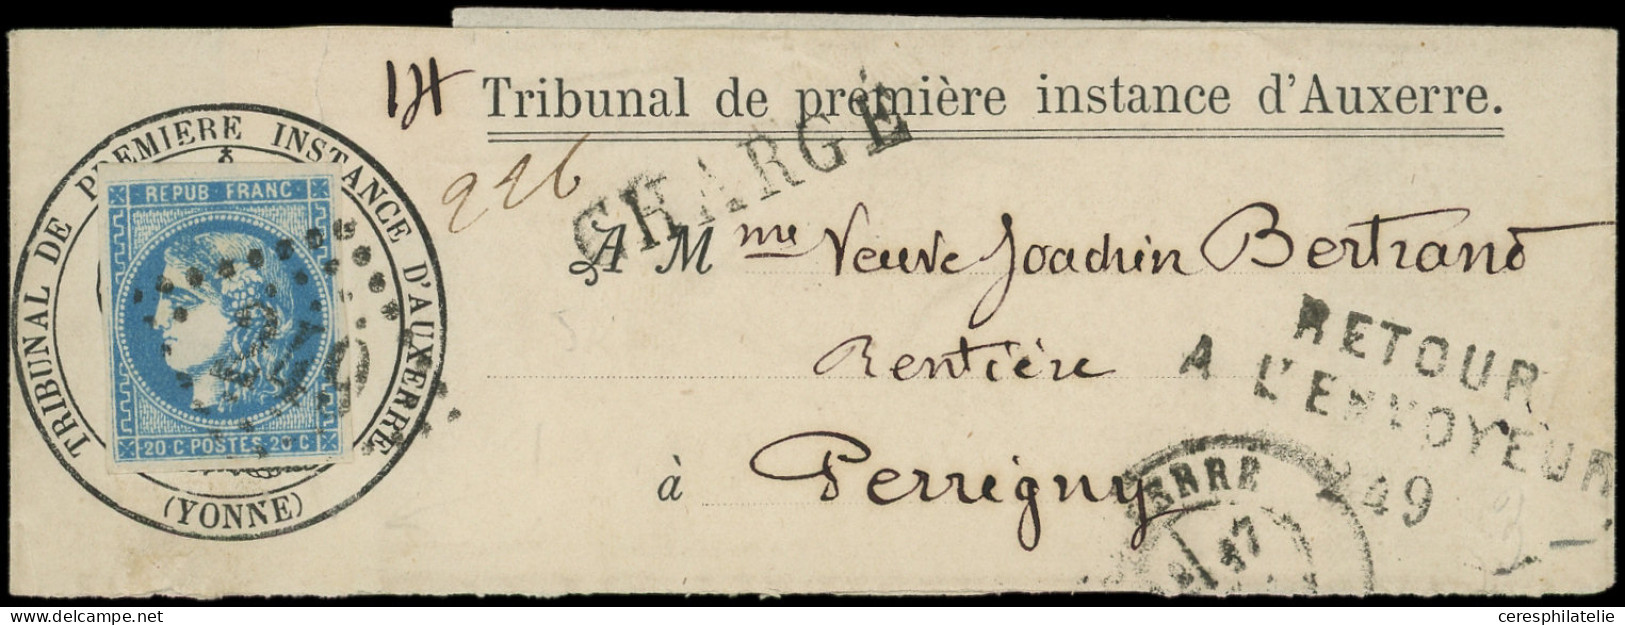 Tribunal de première instance d'Auxerre.
226
CHARGÉ
TRIBUNAL DE PREMIERE INSTANCE D'AUXERRE
(YONNE)
REPUB FRANC
20 C POSTES 20 C
A Mme Veuve Joachin Bertrand
Rentière
à Perrigny
RETOUR
A L'ENVOYEUR
249
17
ceresphilatelie